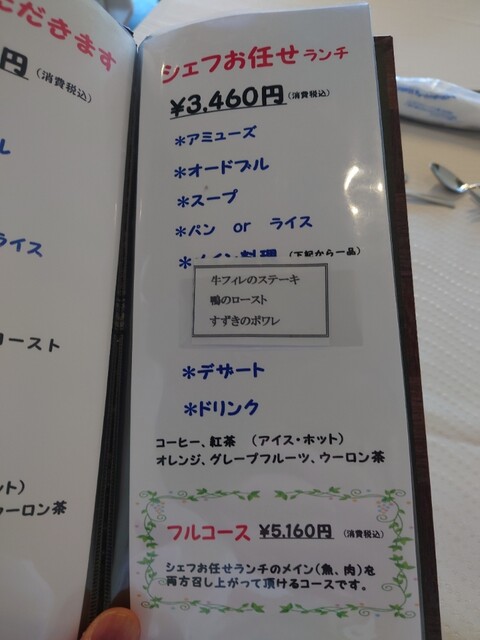 ただきます
円 (消費税込)
ル
ライス
コースト
ット)
ウーロン茶
シェフお任せランチ
¥3,460円(消費税込)
*アミューズ
*オードブル
*スープ
*パン or ライス
*メイン料理 (下記から一品)
牛フィレのステーキ
鴨のロースト
すずきのポワレ
*デザート
*ドリンク
コーヒー、紅茶 (アイス・ホット)
オレンジ、グレープフルーツ、ウーロン茶
フルコース ¥5,160円 (消費税込)
シェフお任せランチのメイン(魚、肉)を
両方召し上がって頂けるコースです。